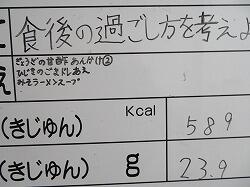 に食後の過ごし方を考えよ
え
ぎょうざの甘酢あんかけ②
ひじきのごまドレあえ
みそラーメンスープ
Kcal
(きじゅん) 589
(きじゅん) g 23.9